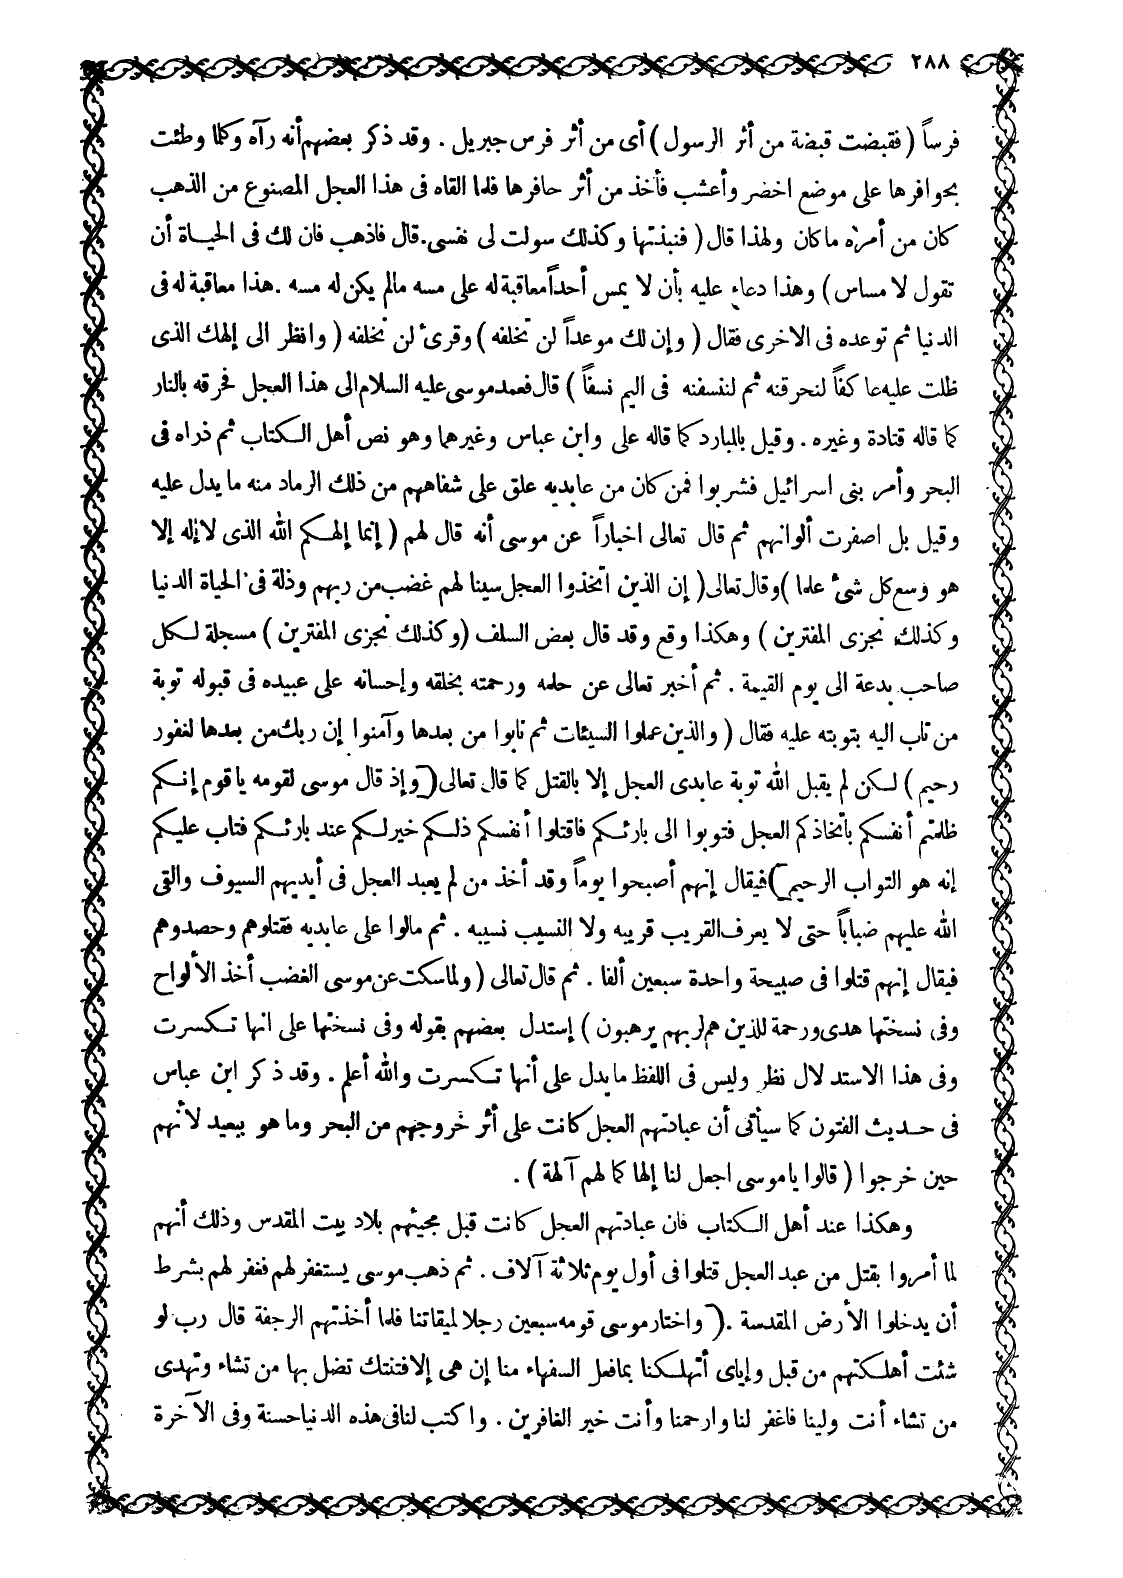 ٢٨٨
فرساً ( فقبضت قبضة من أثر الرسول ) أى من أثر فرس جبريل . وقد ذكر بعضهم أنه رآه وكلما وطئت
بحوافرها على موضع اخضر وأعشب فأخذ من أثر حافرها فلما القاه فى هذا العجل المصنوع من الذهب
كان من أمره ماكان ولهذا قال ( فنبذتها وكذلك سولت لى نفسى . قال فاذهب فان لك فى الحياة أن
تقول لا مساس ) وهذا دعاء عليه بأن لا يمس أحداً معاقبة له على مسه مالم يكن له مسه . هذا معاقبة له فى
الدنيا ثم توعده فى الاخرى فقال ( وإن لك موعداً لن تخلفه ) وقرئ لن نخلفه ( وانظر الى إلهك الذى
ظلت عليه عاكفاً لنحرقنه ثم لننسفنه فى اليم نسفاً ) قال فعمد موسى عليه السلام الى هذا العجل فحرقه بالنار
كما قاله قتادة وغيره . وقيل بالمبارد كما قاله على وابن عباس وغيرهما وهو نص أهل الكتاب ثم ذراه فى
البحر وأمر بنى اسرائيل فشربوا فمن كان من عابديه علق على شفاههم من ذلك الرماد منه ما يدل عليه
وقيل بل اصفرت ألوانهم ثم قال تعالى اخباراً عن موسى أنه قال لهم ( إنما إلهكم الله الذى لا إله إلا
هو وسع كل شئ علما ) وقال تعالى ( إن الذين اتخذوا العجل سينا لهم غضب من ربهم وذلة فى الحياة الدنيا
وكذلك نجزى المفترين ) وهكذا وقع وقد قال بعض السلف ( وكذلك نجزى المفترين ) مسجلة لكل
صاحب بدعة الى يوم القيمة . ثم أخبر تعالى عن حلمه ورحمته بخلقه وإحسانه على عبيده فى قبوله توبة
من تاب اليه بتوبته عليه فقال ( والذين عملوا السيئات ثم تابوا من بعدها وآمنوا إن ربك من بعدها لغفور
رحيم ) لكن لم يقبل الله توبة عابدى العجل إلا بالقتل كما قال تعالى ( وإذ قال موسى لقومه ياقوم إنكم
ظلمتم أنفسكم باتخاذكم العجل فتوبوا الى بارئكم فاقتلوا أنفسكم ذلكم خير لكم عند بارئكم فتاب عليكم
إنه هو التواب الرحيم ) فيقال إنهم أصبحوا يوماً وقد أخذ من لم يعبد العجل فى أيديهم السيوف والقى
الله عليهم ضباباً حتى لا يعرف القريب قريبه ولا النسيب نسيبه . ثم مالوا على عابديه فقتلوهم وحصدوهم
فيقال إنهم قتلوا فى صبيحة واحدة سبعين ألفا . ثم قال تعالى ( ولما سكت عن موسى الغضب أخذ الألواح
وفى نسختها هدى ورحمة للذين هم لربهم يرهبون ) إستدل بعضهم بقوله وفى نسختها على انها تكسرت
وفى هذا الاستدلال نظر وليس فى اللفظ ما يدل على أنها تكسرت والله أعلم . وقد ذكر ابن عباس
فى حديث الفتون كما سيأتى أن عبادتهم العجل كانت على أثر خروجهم من البحر وما هو ببعيد لأنهم
حين خرجوا ( قالوا ياموسى اجعل لنا إلها كما لهم آلهة ) .
وهكذا عند أهل الكتاب فان عبادتهم العجل كانت قبل مجيئهم بلاد بيت المقدس وذلك أنهم
لما أمروا بقتل من عبد العجل قتلوا فى أول يوم ثلاثة آلاف . ثم ذهب موسى يستغفر لهم فغفر لهم بشرط
أن يدخلوا الأرض المقدسة . ( واختار موسى قومه سبعين رجلا لميقاتنا فلما أخذتهم الرجفة قال رب لو
شئت أهلكتهم من قبل وإياى أتهلكنا بما فعل السفهاء منا إن هى إلا فتنتك تضل بها من تشاء وتهدى
من تشاء أنت ولينا فاغفر لنا وارحمنا وأنت خير الغافرين . واكتب لنا فى هذه الدنيا حسنة وفى الآخرة